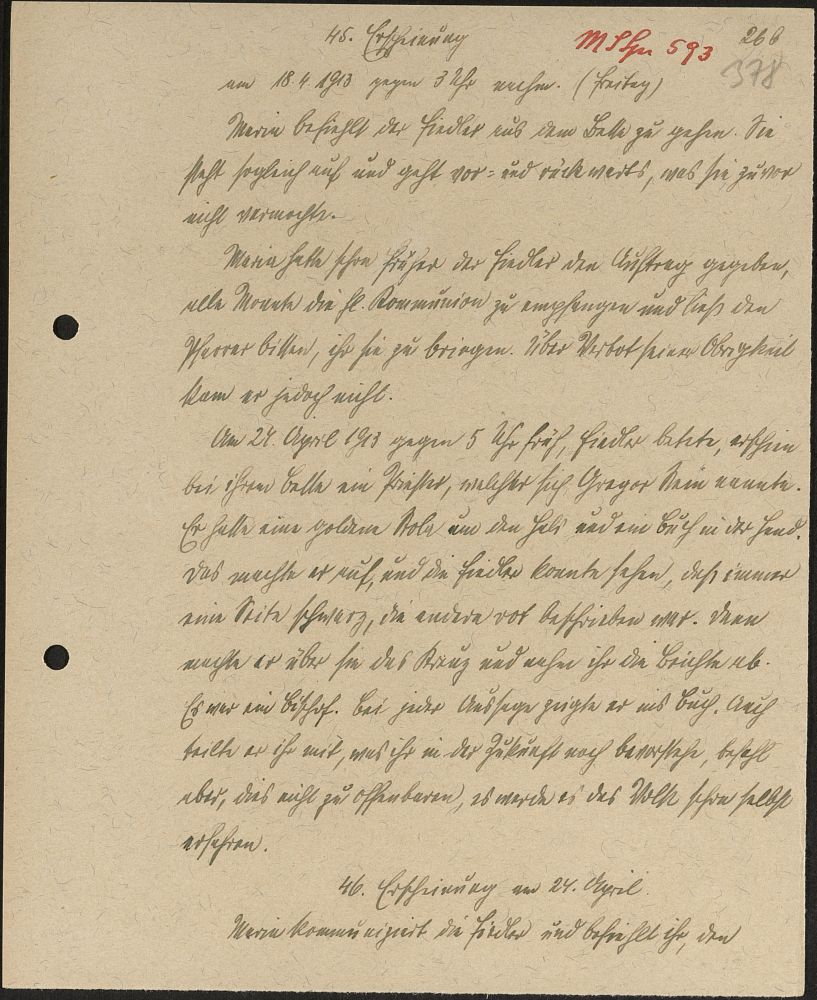 45. Erscheinung
266
593
378
am 18. 4. 1913 gegen 3 Uhr nachm. (Freitag)
Maria befiehlt der Fiedler aus dem Bette zu gehen. Sie
steht sogleich auf und geht vor= und rückwärts, was sie zuvor
nicht vermochte.
Maria hatte schon früher der Fiedler den Auftrag gegeben,
alle Monate die hl. Kommunion zu empfangen und ließ den
Pfarrer bitten, ihr sie zu bringen. Über Verbot seiner Obrigkeit
kam er jedoch nicht.
Am 24. April 1913 gegen 5 Uhr früh, Fiedler betete, erschien
bei ihrem Bette ein Priester, welcher sich Gregor nannte.
Er hatte eine goldene Stola um den Hals und ein Buch in der Hand.
Das machte er auf, und die Fiedler konnte sehen, daß immer
eine Seite schwarz, die andere rot beschrieben war. Dann
machte er über sie das Kreuz und nahm ihr die Beichte ab.
Es war ein Bischof. Bei jeder Aussage zeigte er ins Buch. Auch
teilte er ihr mit, was ihr in der Zukunft noch bevorstehe, befahl
aber, dies nicht zu offenbaren, es werde es das Volk schon selbst
erfahren.
46. Erscheinung am 24. April.
Maria kommuniziert die Fiedler und befiehlt ihr, den